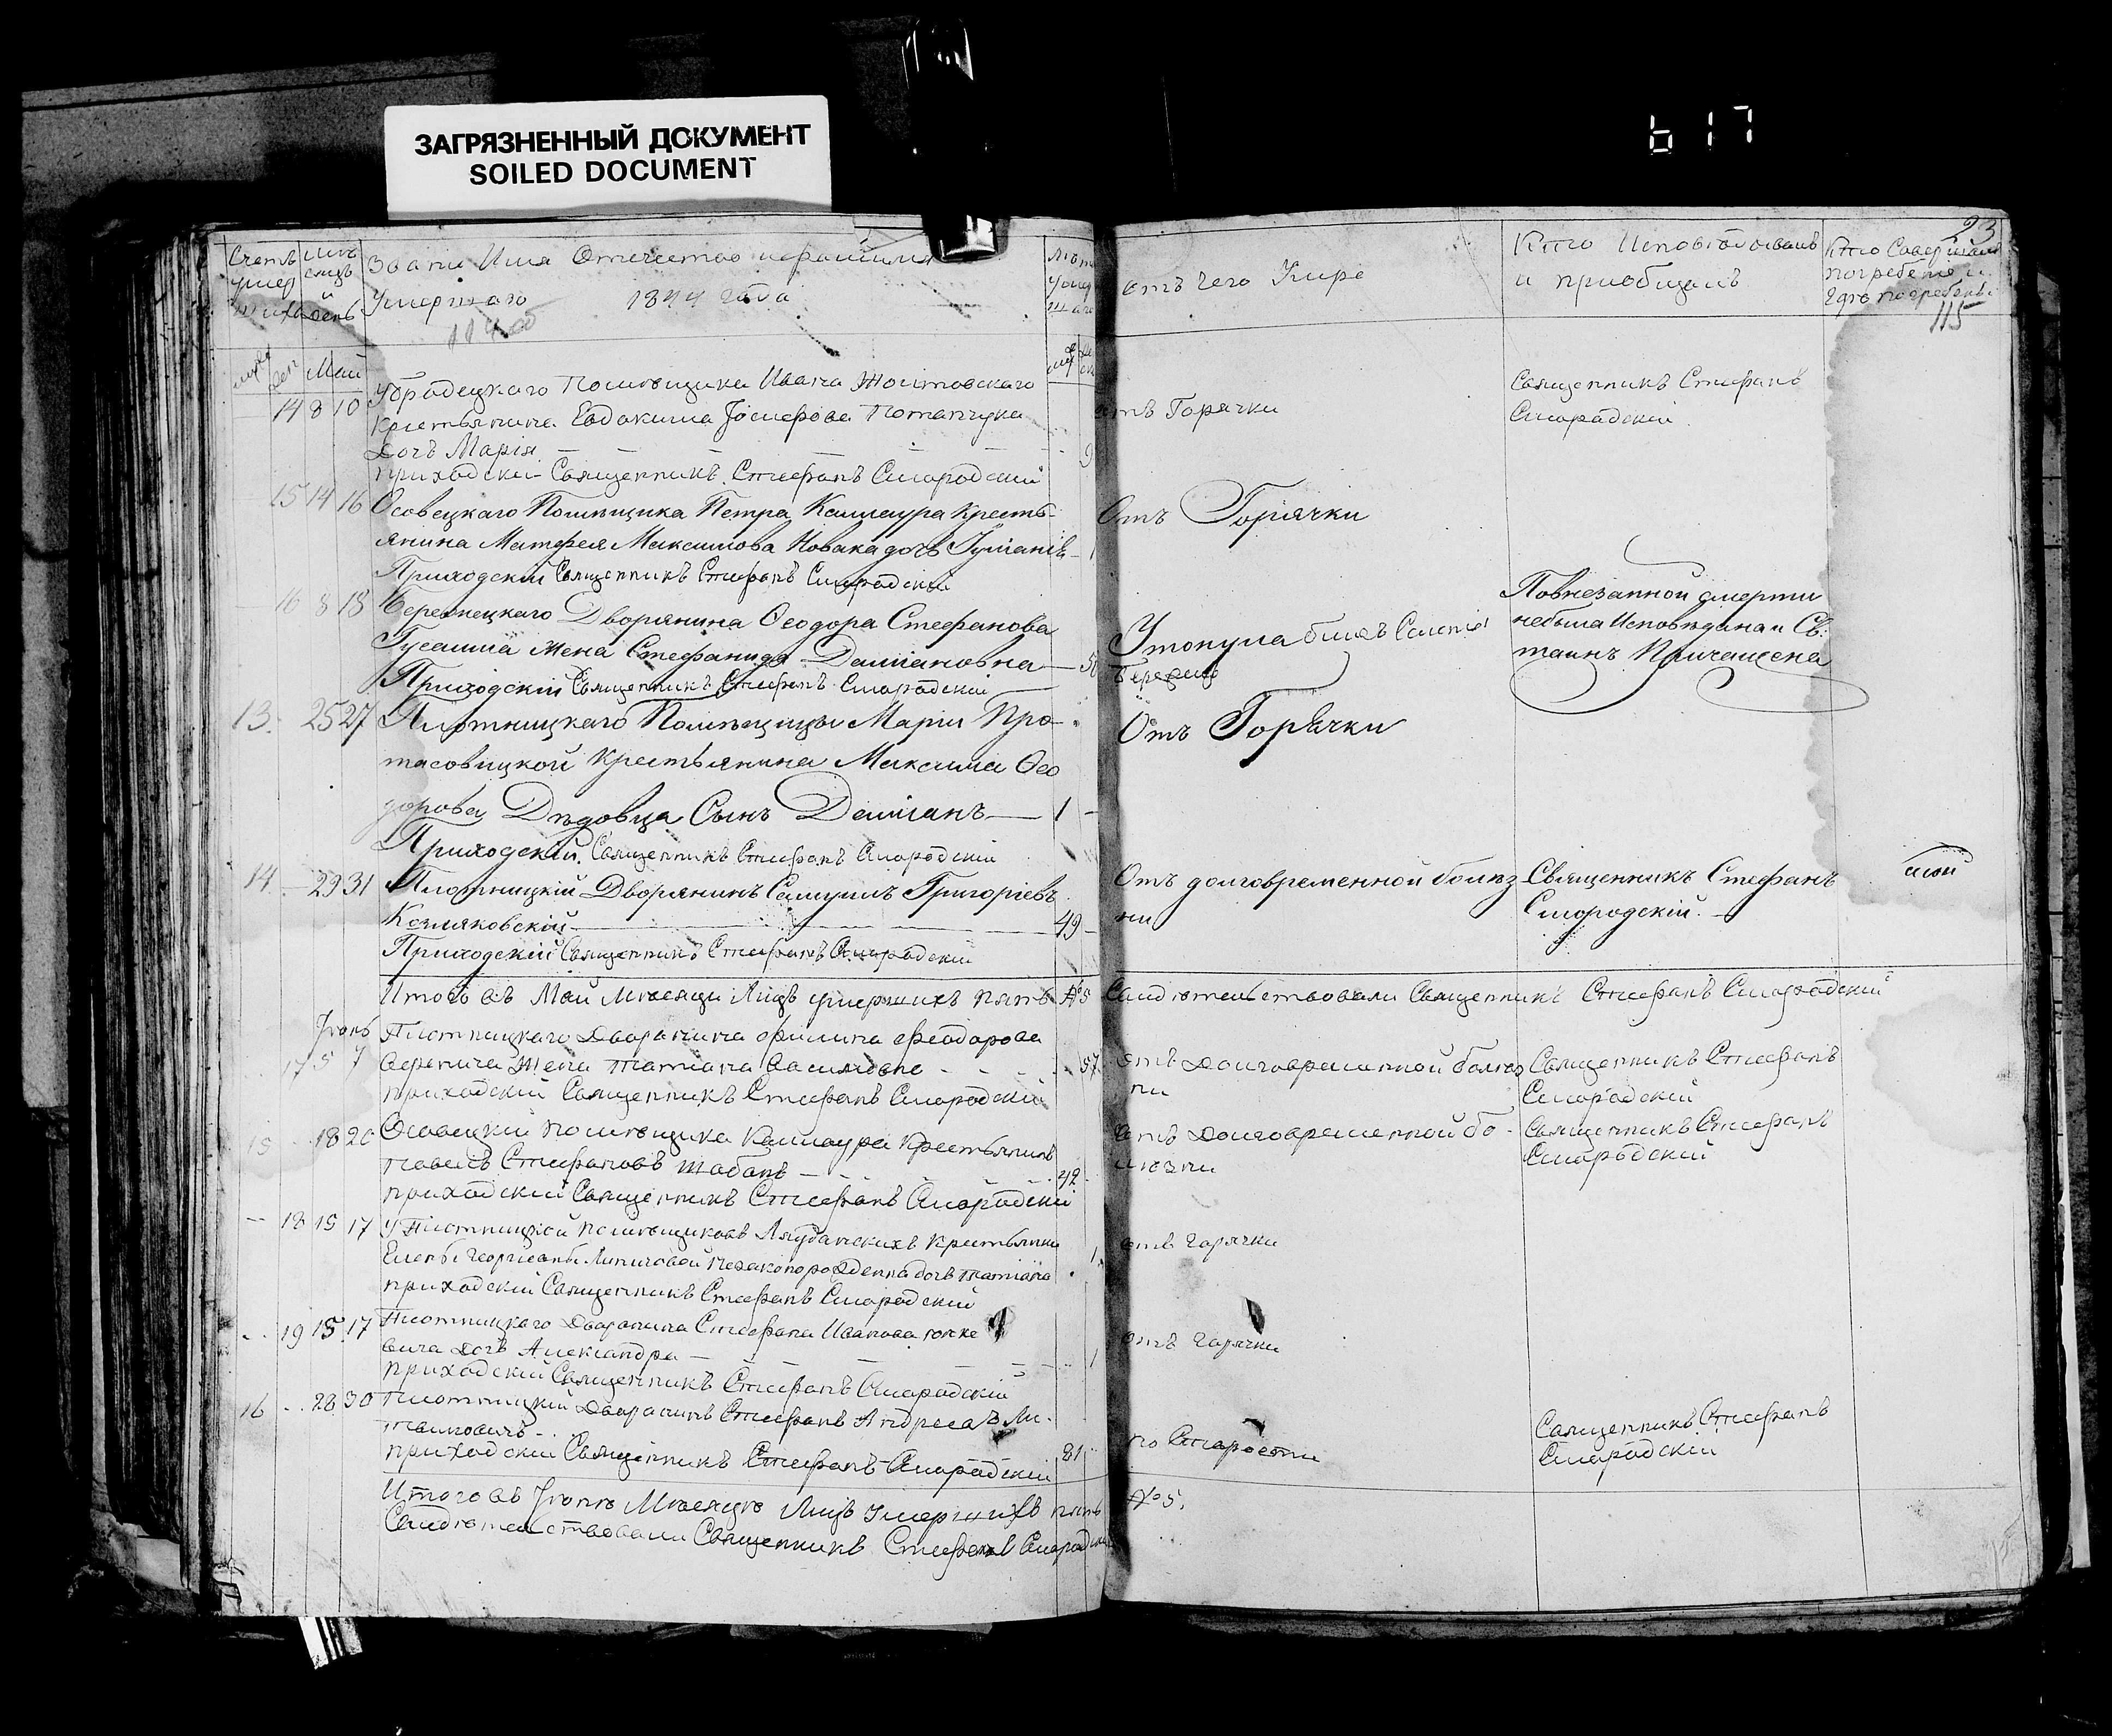 ЗАГРЯЗНЕННЫЙ ДОКУМЕНТ
SOILED DOCUMENT
617
23
115
Счетъ умер
Звание Имя Отечество
Умершаго 1844 года
отъ чего Умре
Кто Исповѣдовалъ
и приобщалъ
Кто Совершалъ
погребение и
гдѣ погребены
Май
14 8 10
Помѣщика Ивана Жолтовскаго
Крестьянина Евдокима Іосифова Потапчука
Дочь Марія 9
приходскій Священникъ Стефанъ Смородскій
отъ Горячки
Священникъ Стефанъ
Смородскій
15 14 16 Осовецкаго Помѣщика Петра Камаура Кресть-
янина Матфея Максимова Новака дочь Іуліанія 1
Приходскій Священникъ Стефанъ Смородскій
Отъ Горячки
16 8 18 Бережецкаго Дворянина Ѳеодора Стефанова
Жена Стефанида Даміановна
Приходскій Священникъ Стефанъ Смородскій
Утонула близъ
Повнезапной смерти
небыла Исповѣдана и Св:
таинъ Причащена
13. 25 27 Плотницкаго Помѣщицы Маріи Про-
тасовицкой Крестьянина Максима Ѳео
дорова Дѣдовца Сынъ Даміанъ — 1 -
Приходскій Священникъ Стефанъ Смородскій
Отъ Горячки
14 29 31 Плотницкій Дворянинъ Самуилъ Григоріевъ
49
Приходскій Священникъ Стефанъ Смородскій
Отъ долговременной болѣз
ни
Священникъ Стефанъ
Смородскій.
Итого въ Май Мѣсяцы Лицъ умершихъ пять №5
Свидѣтельствовали Священникъ Стефанъ Смородскій
Іюнь
17 5 7
Плотницкаго Дворанина Филипа Феодорова
Веренича Жена Татиана 57
приходскій Священникъ Стефанъ Смородскій
отъ Долговременной болѣз
ни
Священникъ Стефанъ
Смородскій
15 18 20 Осовецкій помѣщика Камаура Крестьянинъ
Павелъ Стефановъ Шабанъ 42
приходскій Священникъ Стефанъ Смородскій
отъ Долговременной бо-
лѣзни
Священникъ Стефанъ
Смородскій
18 15 17 помѣщиковъ Крестьянки
Елены Георгиевны дочь Татиана 1
приходскій Священникъ Стефанъ Смородскій
отъ Горячки
19 15 17 Плотницкаго Дворанина Стефана Иванова
вича дочь Александра 1
приходскій Священникъ Стефанъ Смородскій
отъ Горячки
16 28 30 Плотницкій Дворанинъ Стефанъ Андреевъ Ли-
81
приходскій Священникъ Стефанъ Смородскій
по Старости
Священникъ Стефанъ
Смородскій
Итого въ Іюнѣ Мѣсяцѣ Лицъ Умершихъ пять №5.
Свидѣтельствовали Священникъ Стефанъ Смородскій